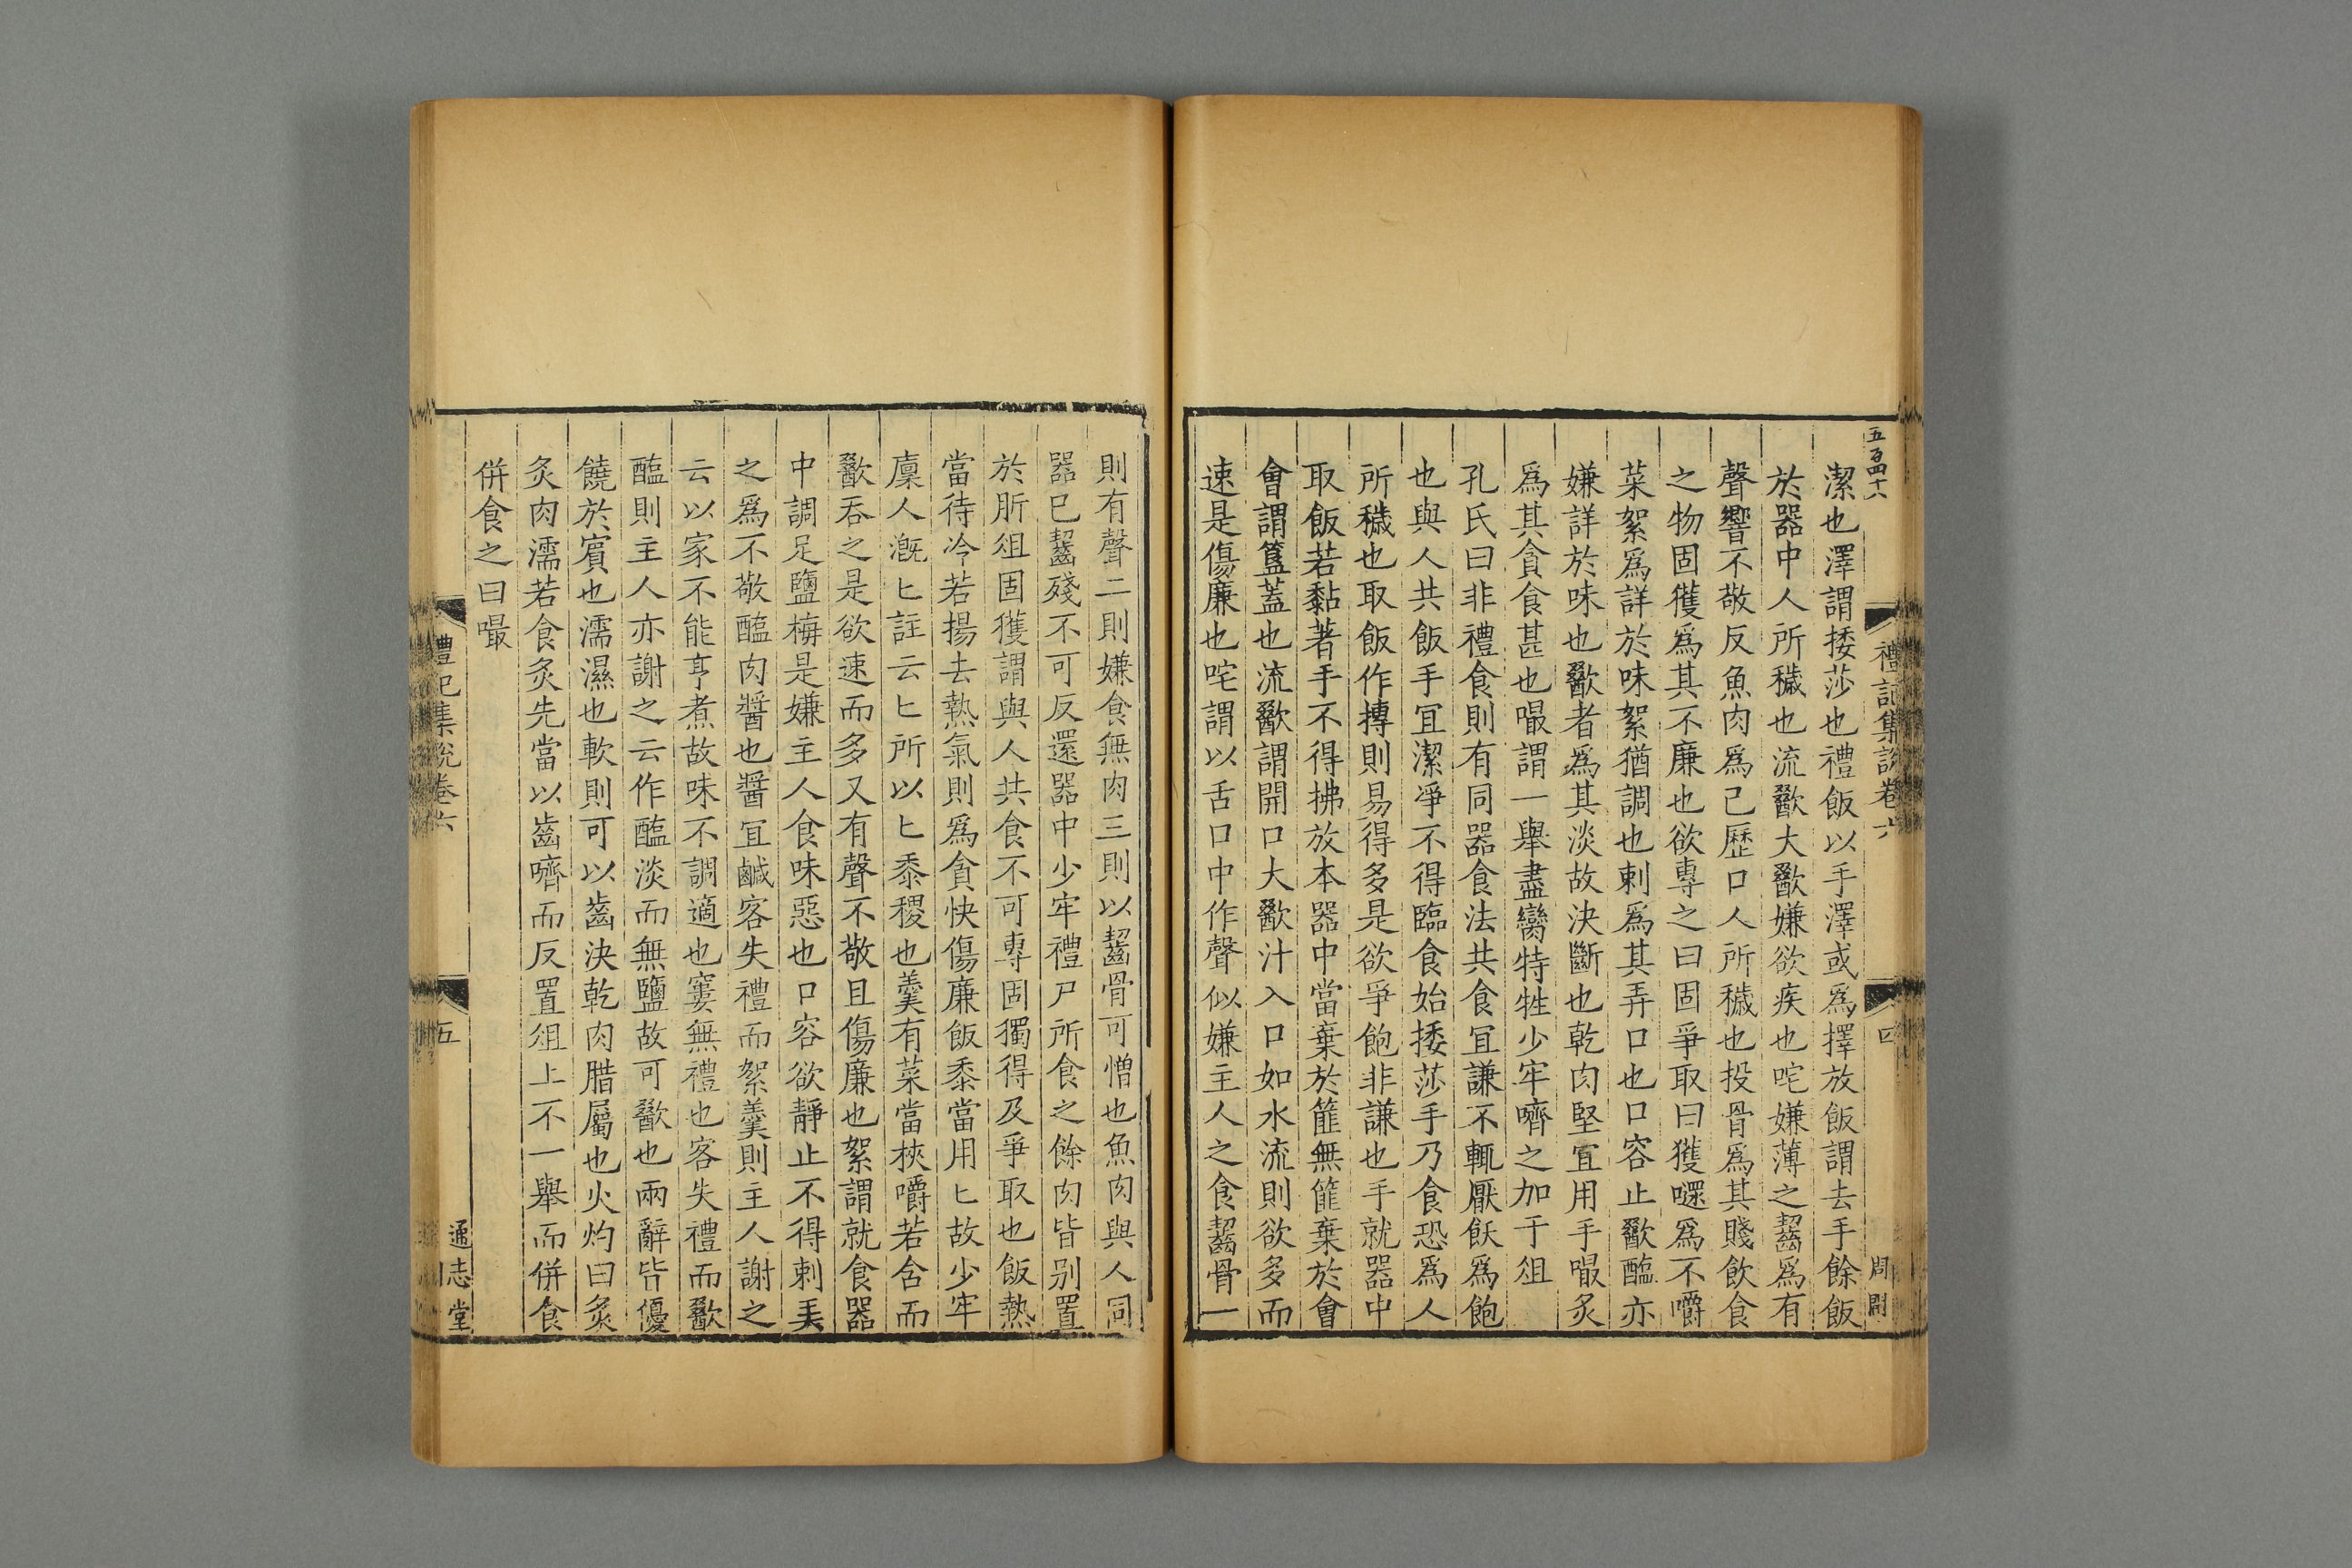 潔也澤謂捼莎也禮飯以手澤或爲擇放飯謂去手餘飯
於器中人所穢也流歠大歠嫌欲疾也咤嫌薄之齧爲有
聲響不敬反魚肉爲已歷口人所穢也投骨爲其賤飲食
之物固獲爲其不廉也欲專之曰固爭取曰獲嚃爲不嚼
菜絮爲詳於味絮猶調也刺爲其弄口也口容止歠醢亦
嫌詳於味也歠者爲其淡故決斷也乾肉堅宜用手嘬炙
爲其貪食甚也嘬謂一舉盡臠特牲少牢嚌之加于俎
孔氏曰非禮食則有同器食法共食宜謙不輒厭飫爲飽
也與人共飯手宜潔凈不得臨食始捼莎手乃食恐爲人
所穢也取飯作摶則易得多是欲爭飽非謙也手就器中
取飯若黏著手不得拂放本器中當棄於篚無篚棄於會
會謂簋蓋也流歠謂開口大歠汁入口如水流則欲多而
速是傷廉也咤謂以舌口中作聲似嫌主人之食齧骨一
則有聲二則嫌食無肉三則以齧骨可憎也魚肉與人同
器已齧殘不可反還器中少牢禮尸所食之餘肉皆别置
於肵俎固獲謂與人共食不可專固獨得及爭取也飯熱
當待冷若揚去熱氣則爲貪快傷廉飯黍當用匕故少牢
廩人漑匕註云匕所以匕黍稷也羹有菜當挾嚼若含而
歠吞之是欲速而多又有聲不敬且傷廉也絮謂就食器
中調足鹽梅是嫌主人食味惡也口容欲靜止不得刺弄
之爲不敬醢肉醬也醬宜鹹客失禮而絮羹則主人謝之
云以家不能亨煮故味不調適也窶無禮也客失禮而歠
醢則主人亦謝之云作醢淡而無鹽故可歠也兩辭皆優
饒於賓也濡濕也軟則可以齒決乾肉腊屬也火灼曰炙
炙肉濡若食炙先當以齒嚌而反置俎上不一舉而併食
併食之曰嘬
禮記集說卷六
四
禮記集說卷六
五
通志堂